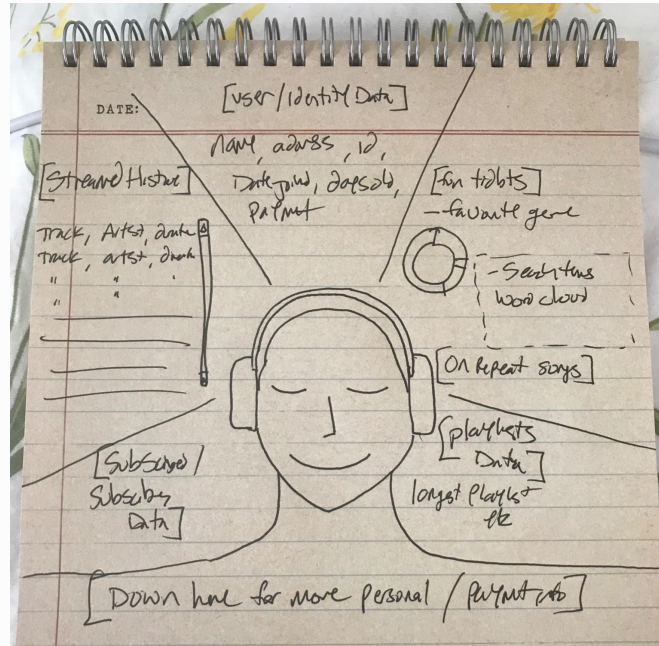 DATE:
[User/Identity Data]
name, address, id,
Date joined, days old,
Payment
[Streamed History]
Track, Artist, duration
Track, artist, duration
" " "
" "
[fun tidbits]
- favorite genre
- Search terms
word cloud
[On Repeat songs]
[Playlists
Data]
longest Playlist
etc
[Subscribed/
Subscriber
Data]
[Down here for more personal / payment info]